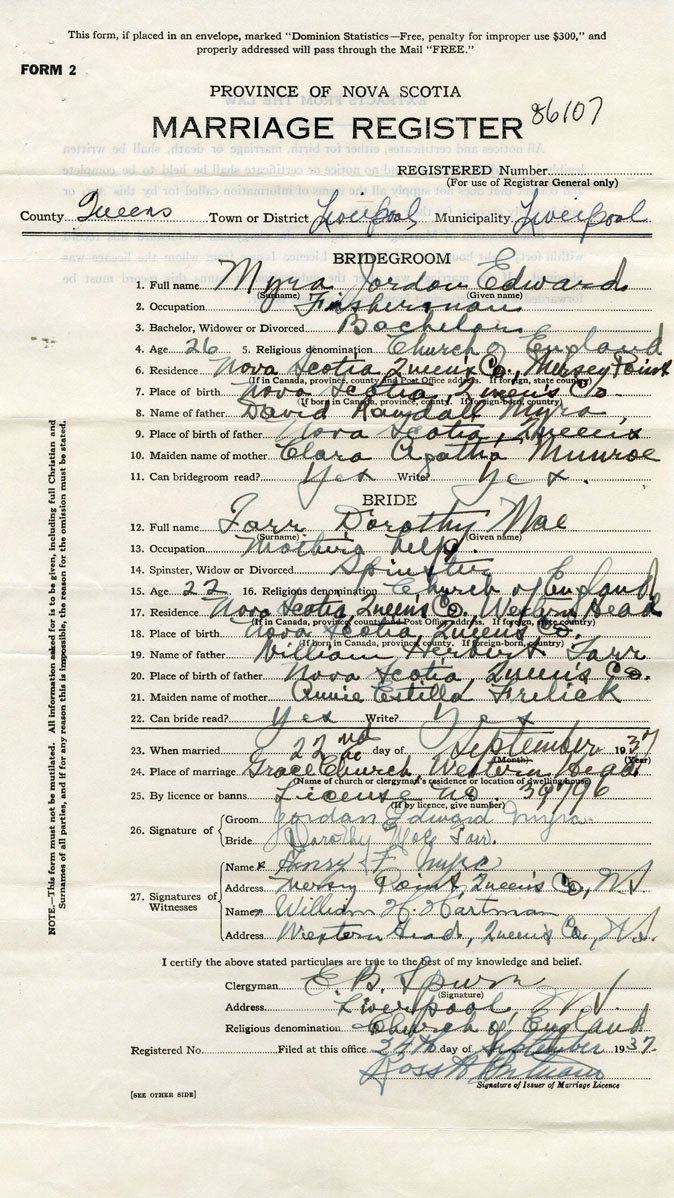 This form, if placed in an envelope, marked "Dominion Statistics—Free, penalty for improper use $300," and
properly addressed will pass through the Mail "FREE."
FORM 2
PROVINCE OF NOVA SCOTIA
MARRIAGE REGISTER 86107
REGISTERED Number
(For use of Registrar General only)
County Queens Town or District Liverpool Municipality Liverpool
BRIDEGROOM
1. Full name Myra Jordan Edward
(Surname) (Given name)
2. Occupation Fisherman
3. Bachelor, Widower or Divorced Bachelor
4. Age 26 5. Religious denomination Church of England
6. Residence Nova Scotia Queens Co., Mersey Point
(If in Canada, province, county and Post Office address. If foreign, state county)
7. Place of birth Nova Scotia, Queens Co.
(If born in Canada, province, county. If foreign-born, country)
8. Name of father David Randall Myra
9. Place of birth of father Nova Scotia, Queens
10. Maiden name of mother Clara Agatha Munroe
11. Can bridegroom read? Yes Write? Yes.
BRIDE
12. Full name Tarr Dorothy Mae
(Surname) (Given name)
13. Occupation Mothers help.
14. Spinster, Widow or Divorced Spinster
15. Age 22 16. Religious denomination Church of England
17. Residence Nova Scotia, Queens Co. Western Head
(If in Canada, province, county and Post Office address. If foreign, state country)
18. Place of birth Nova Scotia, Queens Co.
(If born in Canada, province, county. If foreign-born, country)
19. Name of father William Herbert Tarr
20. Place of birth of father Nova Scotia, Queens Co.
21. Maiden name of mother Annie Estilla Frelick
22. Can bride read? Yes Write? Yes
23. When married 22nd day of September 1937
(Month) (Year)
24. Place of marriage Grace Church Western Head
(Name of church or clergyman's residence or location of dwelling house)
25. By licence or banns License no. 39796
(If by licence, give number)
26. Signature of
Groom Jordan Edward Myra
Bride Dorothy Mae Tarr.
27. Signatures of Witnesses
Name Henry F Myra
Address Mersey Point, Queens Co, N.S
Name William H. Hartman
Address Western Head, Queens Co., N.S.
I certify the above stated particulars are true to the best of my knowledge and belief.
Clergyman E. B. Spurr
(Signature)
Address Liverpool
Religious denomination Church of England
Registered No. Filed at this office 24th day of September 1937.
Ross
Signature of Issuer of Marriage Licence
[SEE OTHER SIDE]
NOTE.—This form must not be mutilated. All information asked for is to be given, including full Christian and
Surnames of all parties, and if for any reason this is impossible, the reason for the omission must be stated.